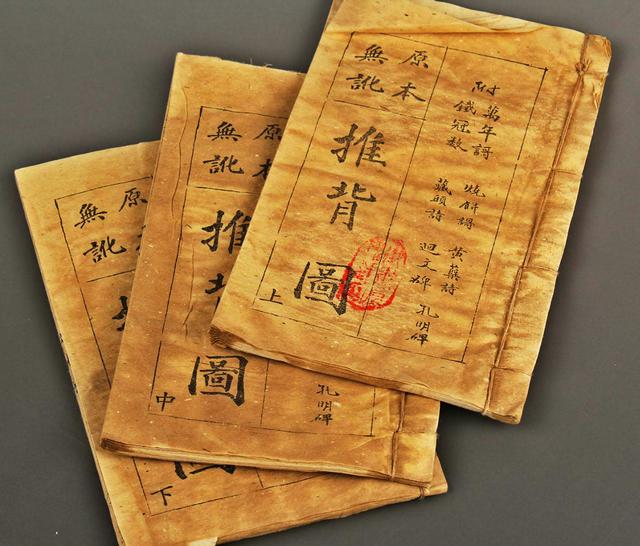 附
萬年謌
鐵冠数
燒餅謌
藏頭詩
黄蘗詩
迴文碑
孔明碑
原本
無訛
推背圖
上
孔明碑
原本
無訛
推背圖
中
原
無訛
下